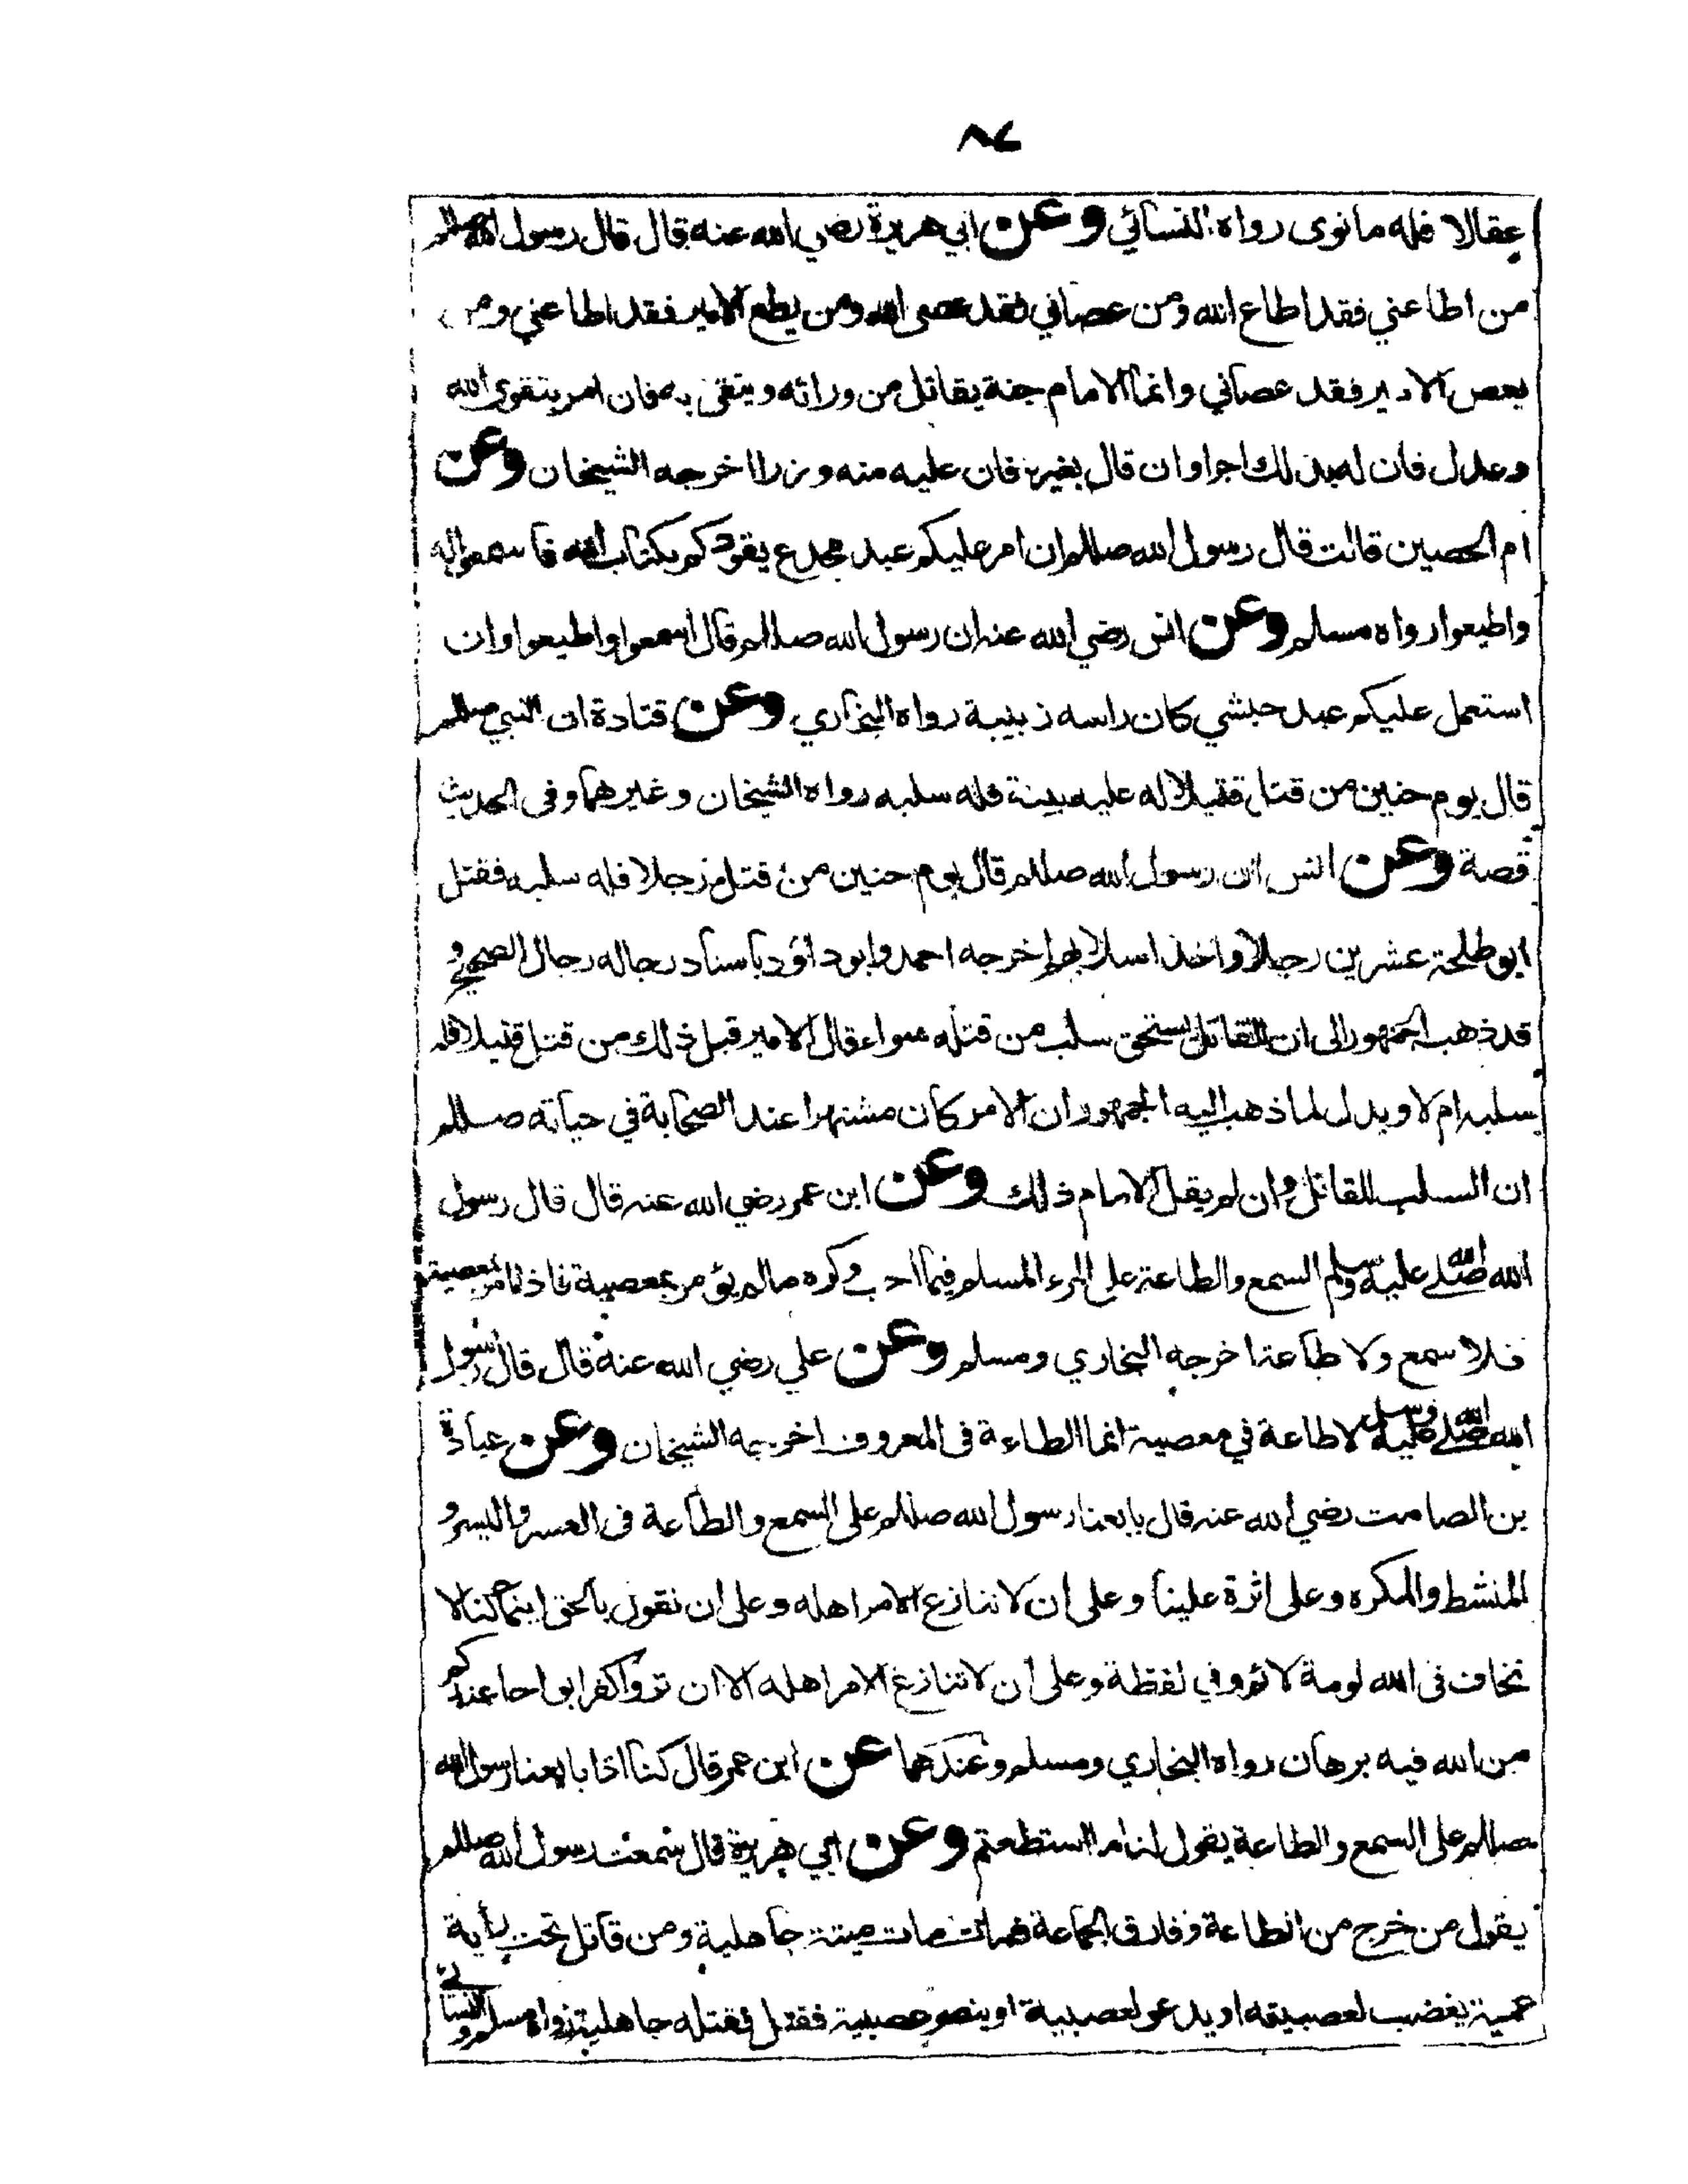 ٨٤
عقالا فله ما نوى رواه النسائي وعن ابي هريرة رضي الله عنه قال قال رسول الله صللم
من اطاعني فقد اطاع الله ومن عصاني فقد عصى الله ومن يطع الامير فقد اطاعني ومن
يعص الامير فقد عصاني وانما الامام جنة يقاتل من ورائه ويتقى به فان امر بتقوى الله
وعدل فان له بذلك اجرا وان قال بغيره فان عليه منه وزرا اخرجه الشيخان وعن
ام الحصين قالت قال رسول الله صللم ان امر عليكم عبد مجدع يقودكم بكتاب الله فاسمعوا له
واطيعوا رواه مسلم وعن انس رضي الله عنه ان رسول الله صللم قال اسمعوا واطيعوا وان
استعمل عليكم عبد حبشي كان راسه زبيبة رواه البخاري وعن قتادة ان النبي صللم
قال يوم حنين من قتل قتيلا له عليه بينة فله سلبه رواه الشيخان وغيرهما وفى الحديث
قصة وعن انس ان رسول الله صللم قال يوم حنين من قتل رجلا فله سلبه فقتل
ابو طلحة عشرين رجلا واخذ اسلابهم اخرجه احمد وابو داؤد باسناد رجاله رجال الصحيح و
قد ذهب الجمهور الى ان القاتل يستحق سلب من قتله سواء قال الامير قبل ذلك من قتل قتيلا فله
سلبه ام لا ويدل لما ذهب اليه الجمهور ان الامر كان مشتهرا عند الصحابة في حياته صللم
ان السلب للقاتل وان لم يقل الامام ذلك وعن ابن عمر رضي الله عنه قال قال رسول
الله صلى الله عليه وسلم السمع والطاعة على المرء المسلم فيما احب وكره ما لم يؤمر بمعصية فاذا امر بمعصية
فلا سمع ولا طاعة اخرجه البخاري ومسلم وعن علي رضي الله عنه قال قال رسول
الله صلى الله عليه وسلم لا طاعة في معصية انما الطاعة فى المعروف اخرجه الشيخان وعن عبادة
بن الصامت رضي الله عنه قال بايعنا رسول الله صللم على السمع والطاعة فى العسر واليسر و
المنشط والمكره وعلى اثرة علينا وعلى ان لا ننازع الامر اهله وعلى ان نقول بالحق اينما كنا لا
نخاف فى الله لومة لائم وفي لفظة وعلى ان لا ننازع الامر اهله الا ان تروا كفرا بواحا عندكم
من الله فيه برهان رواه البخاري ومسلم وعندهما عن ابن عمر قال كنا اذا بايعنا رسول الله
صللم على السمع والطاعة يقول لنا ما استطعتم وعن ابي هريرة قال سمعت رسول الله صللم
يقول من خرج من الطاعة وفارق الجماعة فمات مات ميتة جاهلية ومن قاتل تحت راية
عمية يغضب لعصبيته او يدعو لعصبية او ينصر عصبية فقتل فقتله جاهلية رواه مسلم والنسائي